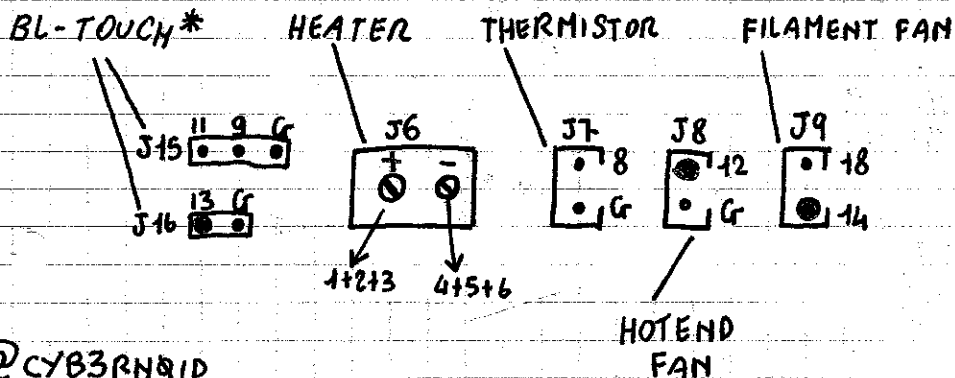 BL-TOUCH* HEATER THERMISTOR FILAMENT FAN
J15 11 9 G
J16 13 G
J6
+ -
1+2+3 4+5+6
J7 8 G
J8 12 G
J9 18 14
HOTEND
FAN
@CYB3RN0ID